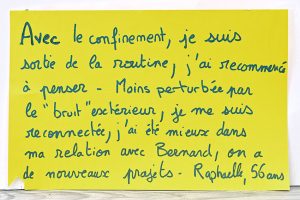 Avec le confinement, je suis
sortie de la routine, j'ai recommencé
à penser - Moins perturbée par
le "bruit" extérieur, je me suis
reconnectée, j'ai été mieux dans
ma relation avec Bernard, on a
de nouveaux projets - Raphaelle, 56 ans